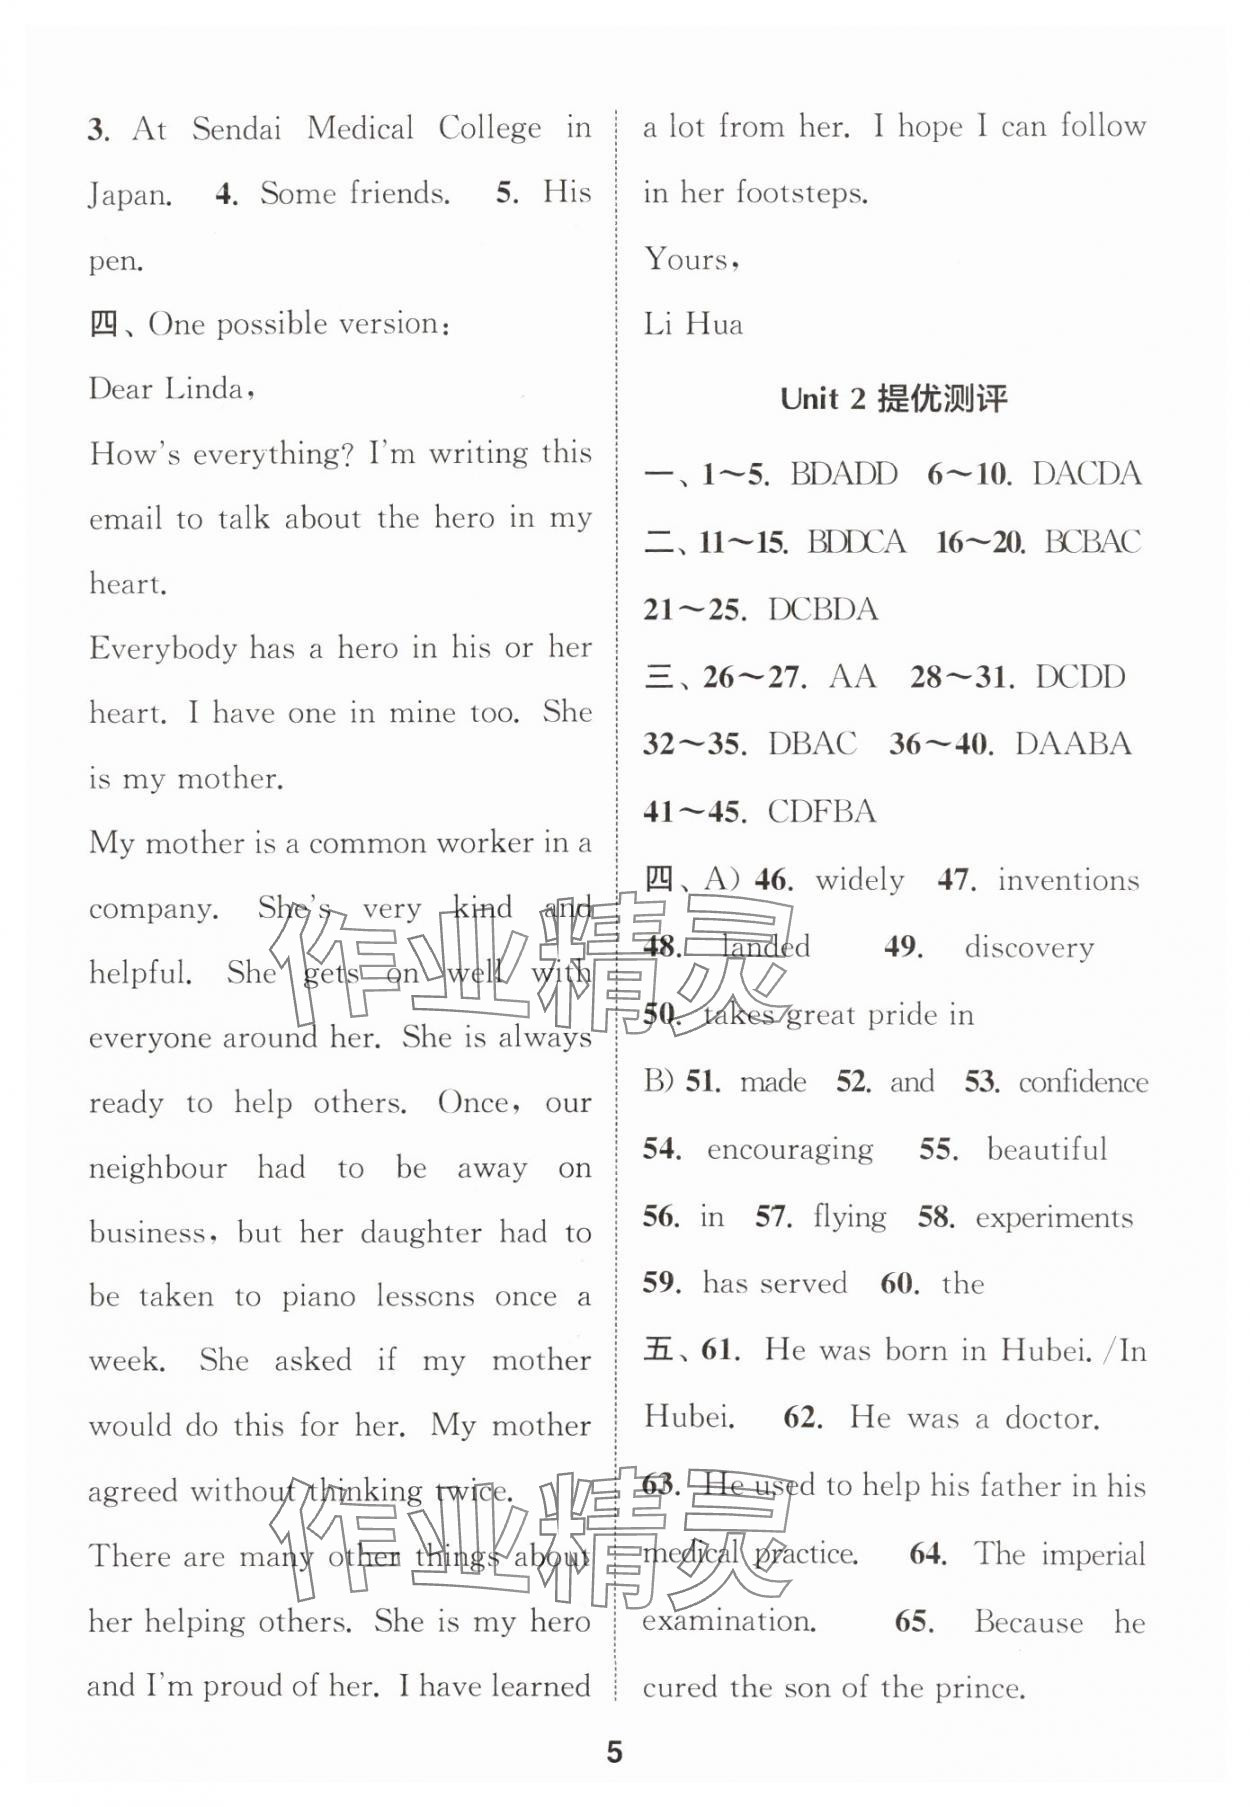 3. At Sendai Medical College in
Japan. 4. Some friends. 5. His
pen.
四、One possible version:
Dear Linda,
How's everything? I'm writing this
email to talk about the hero in my
heart.
Everybody has a hero in his or her
heart. I have one in mine too. She
is my mother.
My mother is a common worker in a
company. She's very kind and
helpful. She gets on well with
everyone around her. She is always
ready to help others. Once, our
neighbour had to be away on
business, but her daughter had to
be taken to piano lessons once a
week. She asked if my mother
would do this for her. My mother
agreed without thinking twice.
There are many other things about
her helping others. She is my hero
and I'm proud of her. I have learned
a lot from her. I hope I can follow
in her footsteps.
Yours,
Li Hua
Unit 2 提优测评
一、1～5. BDADD 6～10. DACDA
二、11～15. BDDCA 16～20. BCBAC
21～25. DCBDA
三、26～27. AA 28～31. DCDD
32～35. DBAC 36～40. DAABA
41～45. CDFBA
四、A) 46. widely 47. inventions
48. landed 49. discovery
50. takes great pride in
B) 51. made 52. and 53. confidence
54. encouraging 55. beautiful
56. in 57. flying 58. experiments
59. has served 60. the
五、61. He was born in Hubei. /In
Hubei. 62. He was a doctor.
63. He used to help his father in his
medical practice. 64. The imperial
examination. 65. Because he
cured the son of the prince.
5
作业精灵
作业精灵